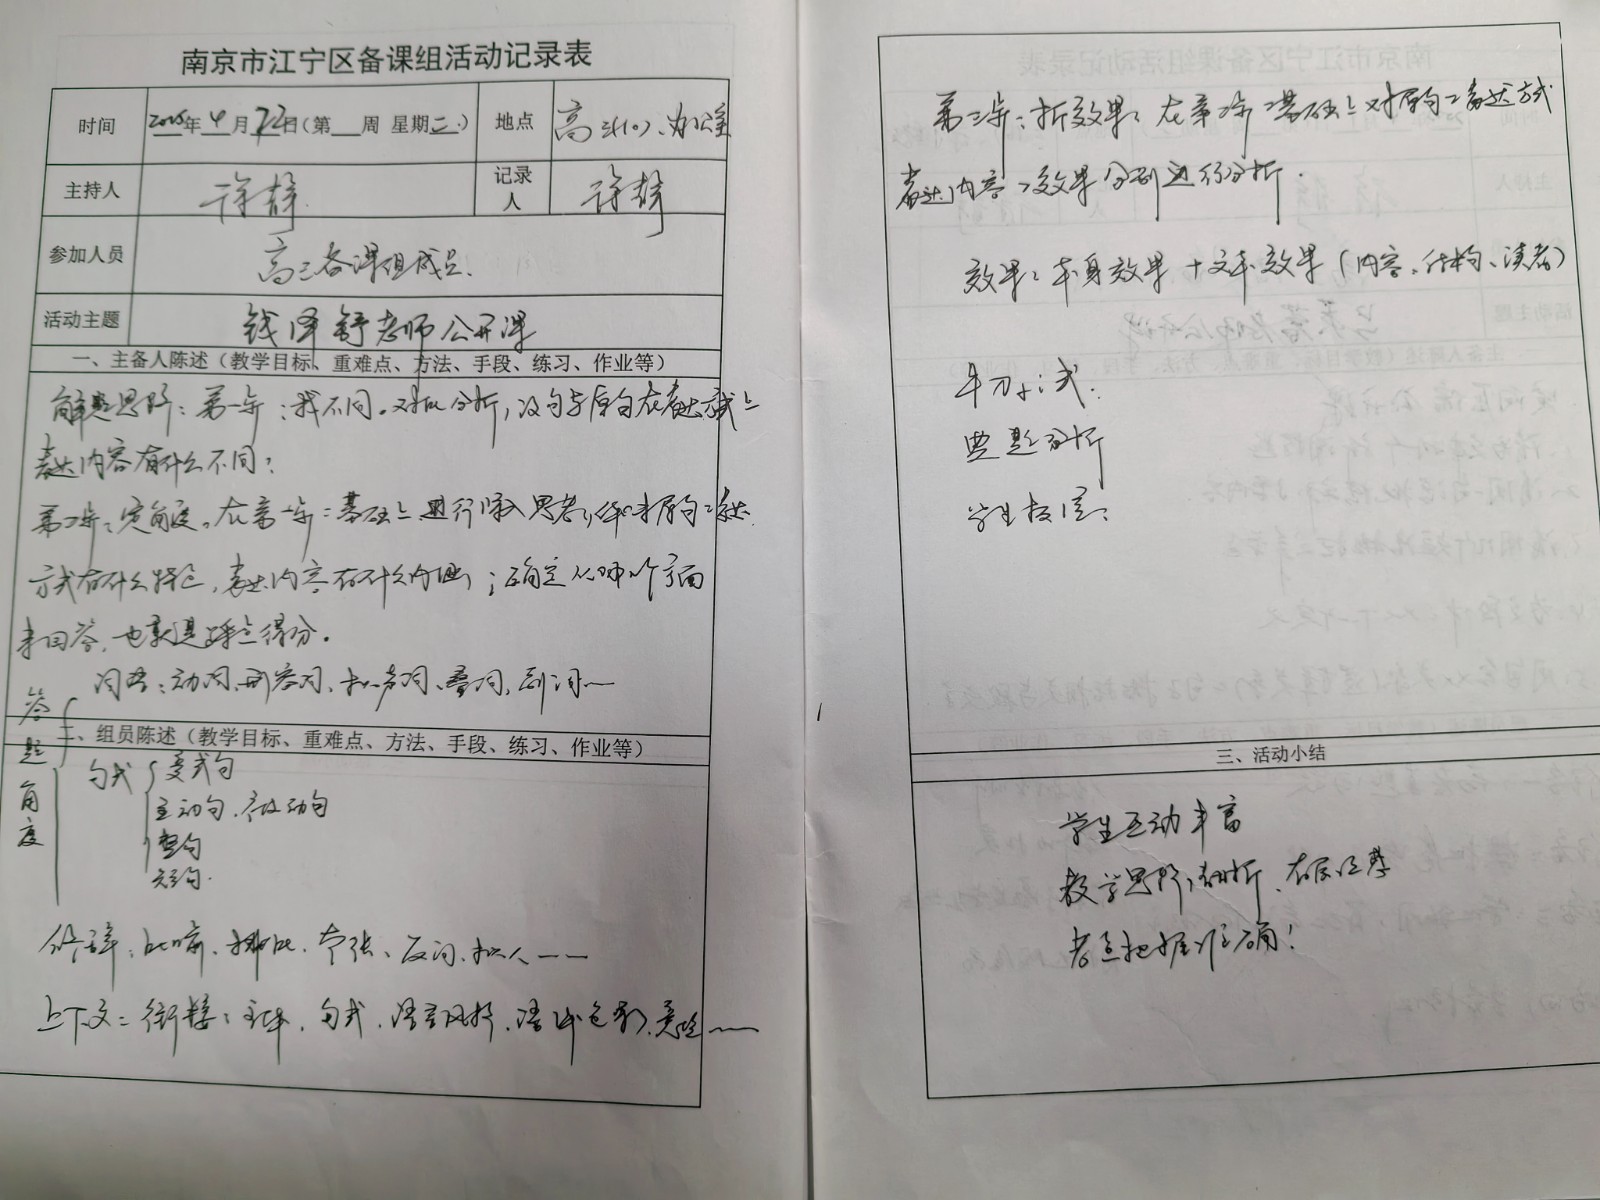 南京市江宁区备课组活动记录表
时间 2025年4月22日(第__周 星期二) 地点 高三(10)、办公室
主持人 许静 记录人 许静
参加人员 高三备课组成员.
活动主题 钱泽舒老师公开课
一、主备人陈述(教学目标、重难点、方法、手段、练习、作业等)
解题思路:第一步:找不同。对比分析,改句与原句在表达方式上
表达内容有什么不同;
第二步:定角度。在第一步的基础上进行深入思考,体味原句的表达
方式有什么特征,表达内容有什么内涵;确定从哪个方面
来回答,也就是踩点得分。
答题角度
词语:动词、形容词、拟声词、叠词、副词……
二、组员陈述(教学目标、重难点、方法、手段、练习、作业等)
句式 变式句
主动句、被动句
整句
短句.
修辞:比喻、排比、夸张、反问、拟人……
上下文:衔接:主体、句式、语言风格、语体色彩、……
第三步:析效果:在第二步的基础上对原句的表达方式
表达内容的效果分别进行分析.
效果:本身效果+文本效果(内容、结构、读者)
牛刀小试:
典题分析
学生板演:
三、活动小结
学生互动丰富
教学思路清晰、
考点把握准确!